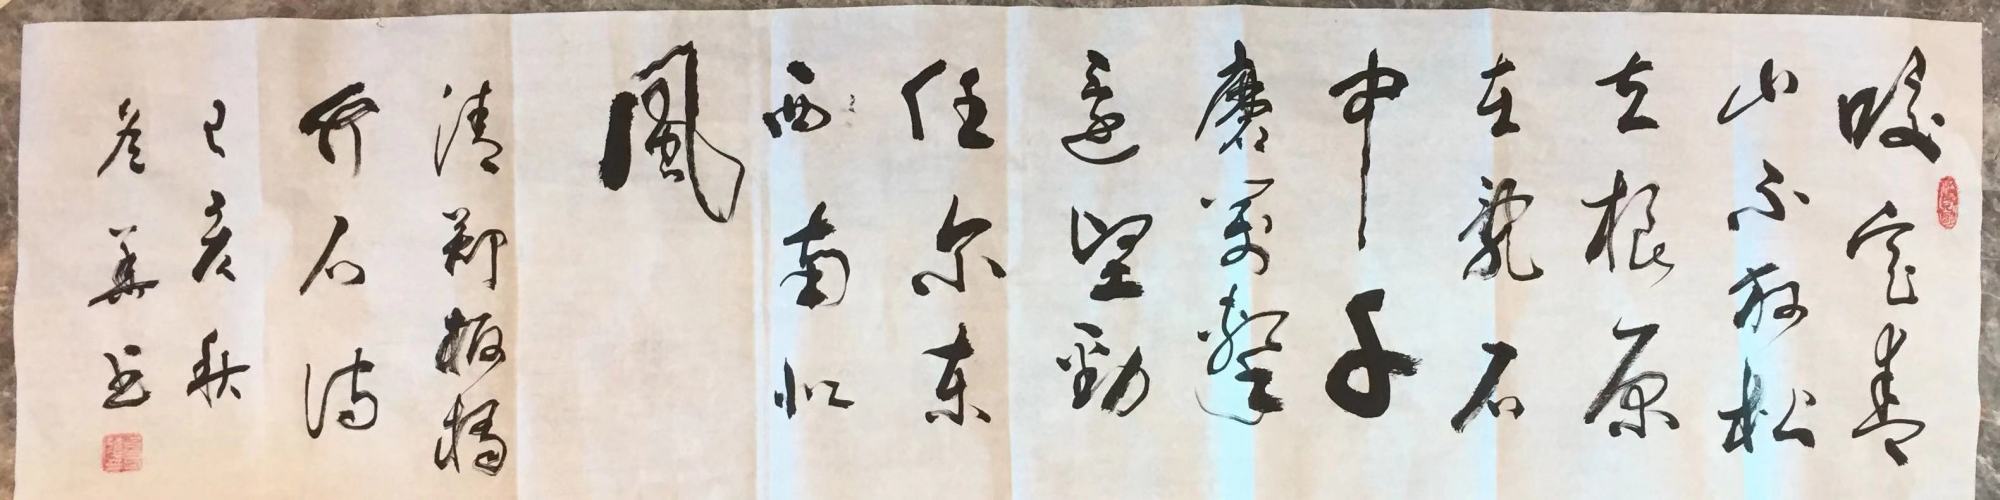 咬定青
山不放松
立根原
在乱石
中千
磨万击
还坚劲
任尔东
西南北
風
清郑板橋
竹石诗
己亥秋